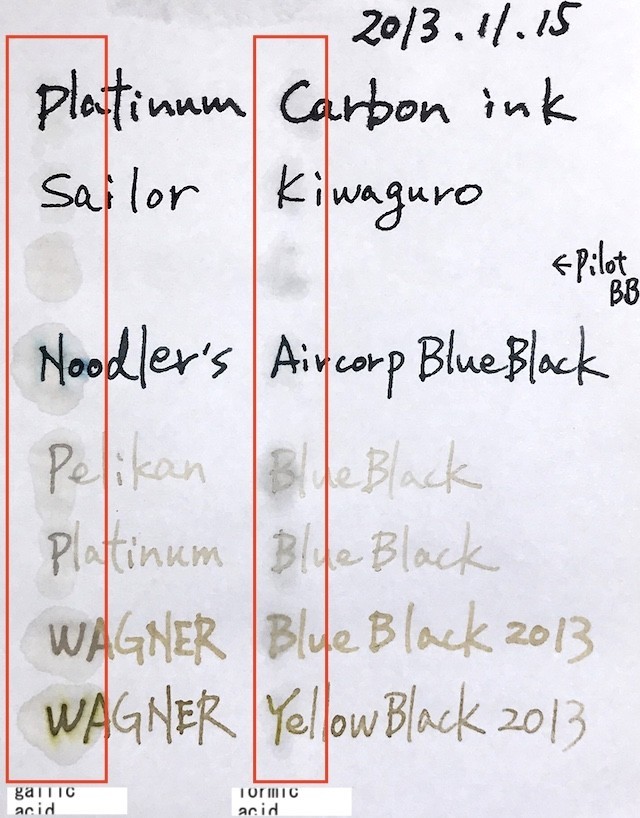 2013.11.15
Platinum Carbon ink
Sailor Kiwaguro
←Pilot
BB
Noodler's Aircorp BlueBlack
Pelikan BlueBlack
Platinum Blue Black
WAGNER Blue Black 2013
WAGNER Yellow Black 2013
gallic formic
acid acid